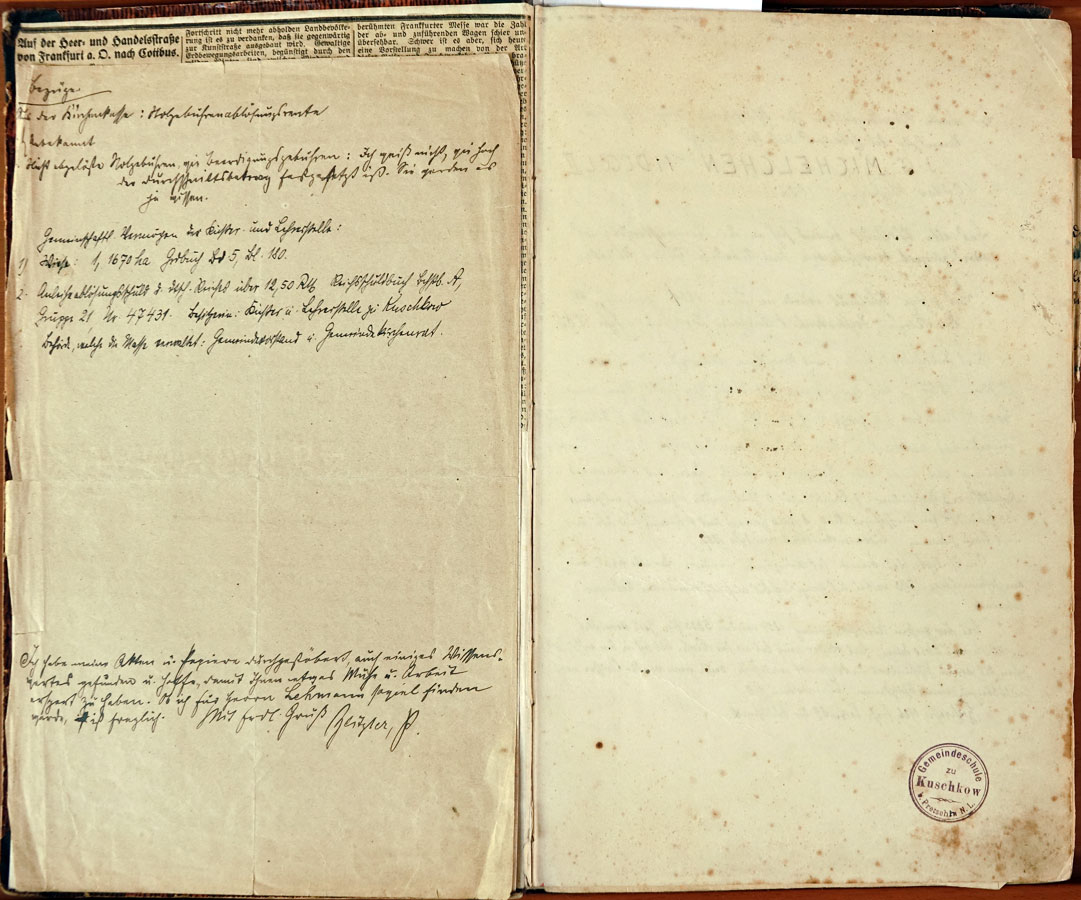 Auf der Heer- und Handelsstraße
von Frankfurt a. O. nach Cottbus.
Fortschritt nicht mehr abholden Landbevölke-
rung ist es zu verdanken, daß sie gegenwärtig
zur Kunststraße ausgebaut wird. Gewaltige
Erdbewegungsarbeiten, begünstigt durch den
berühmten Frankfurter Messe war die Zahl
der ab- und zuführenden Wagen schier un-
übersehbar. Schwer ist es aber, sich heute
eine Vorstellung zu machen von der Art
Bezüge.
Aus der Kirchenkasse: Stolgebührenablösungsrente
Unbekannt
Nicht abgelöste Stolgebühren, wie Beerdigungsgebühren: Ich weiß nicht, wie hoch
der Durchschnittsbetrag festgesetzt ist. Sie werden es
ja wissen.
Gemeinschaftl. Vermögen der Küster- und Lehrerstelle:
1) Wiese: 1,1670 ha Grdbuch Bd 5, Bl. 180.
2. Anleiheablösungsschuld d. dtsch. Reiches über 12,50 Rℳ Reichsschuldbuch A,
Gruppe 21, Nr. 47431. Besitzerin: Küster u. Lehrerstelle zu Kuschkow
Behörde, welche die Masse verwaltet: Gemeindevorstand u. Gemeindekirchenrat.
Ich habe meine Akten u. Papiere durchgestöbert, auch einiges Wissens-
wertes gefunden u. hoffe, damit Ihnen etwas Mühe u. Arbeit
erspart zu haben. Ob ich für Herrn Lehmann soviel finden
werde, ist fraglich. Mit frdl. Gruß
Gemeindeschule
zu
Kuschkow
b. Pretschen N.-L.